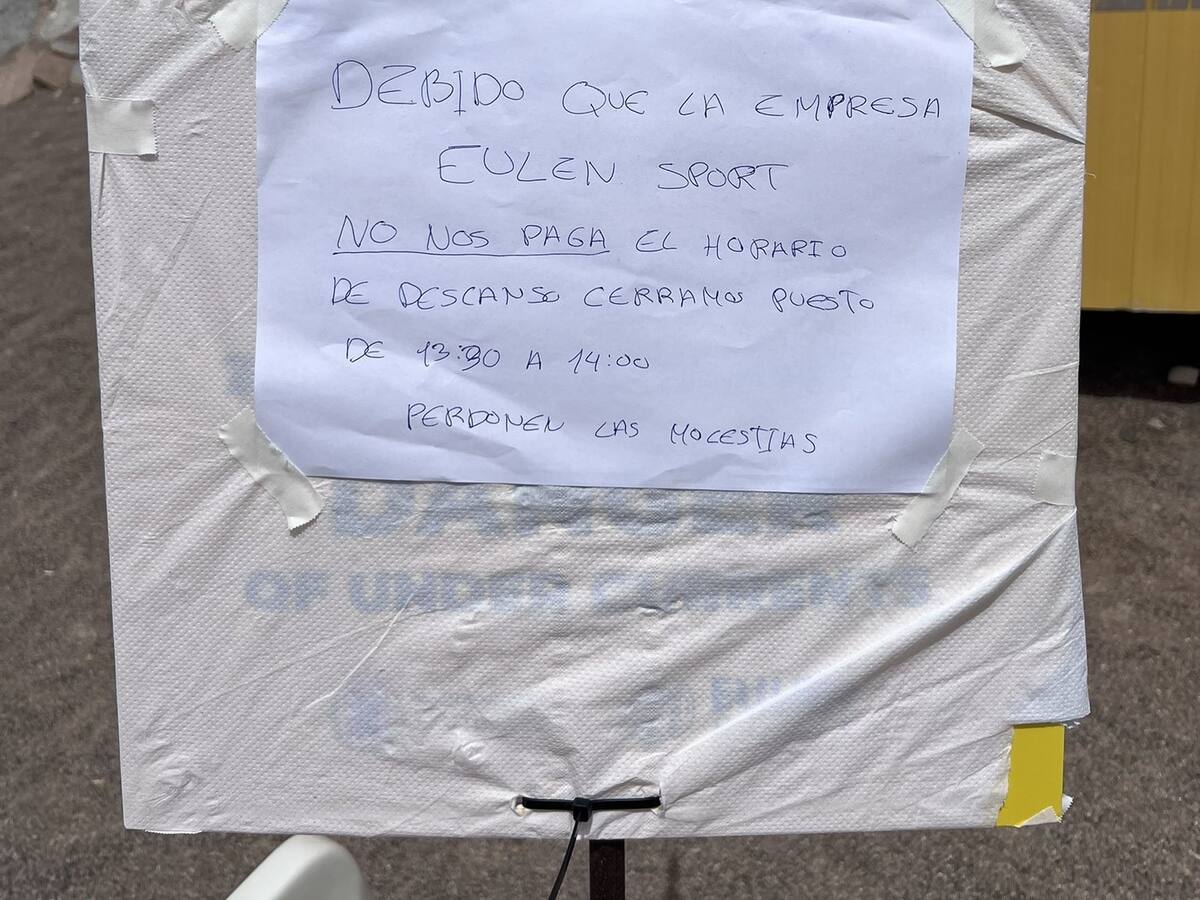 DEBIDO QUE LA EMPRESA
EULEN SPORT
NO NOS PAGA EL HORARIO
DE DESCANSO CERRAMOS PUESTO
DE 13:30 A 14:00
PERDONEN LAS MOLESTIAS
DANGER
OF UNDER CURRENTS